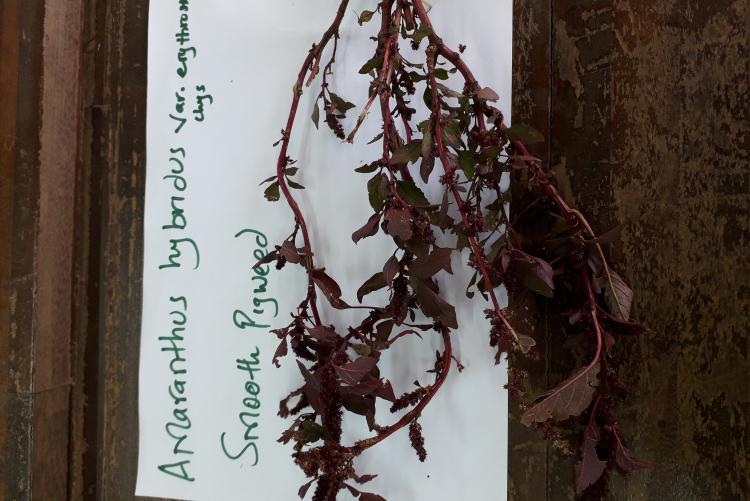 Amaranthus hybridus var. erythrosta
chys
Smooth Pigweed